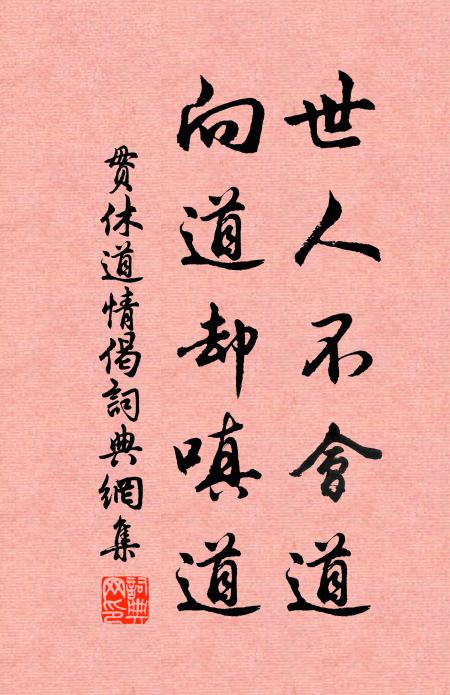 世人不會道
向道却嗔道
貫休道情偈詞典網集
詞典网印